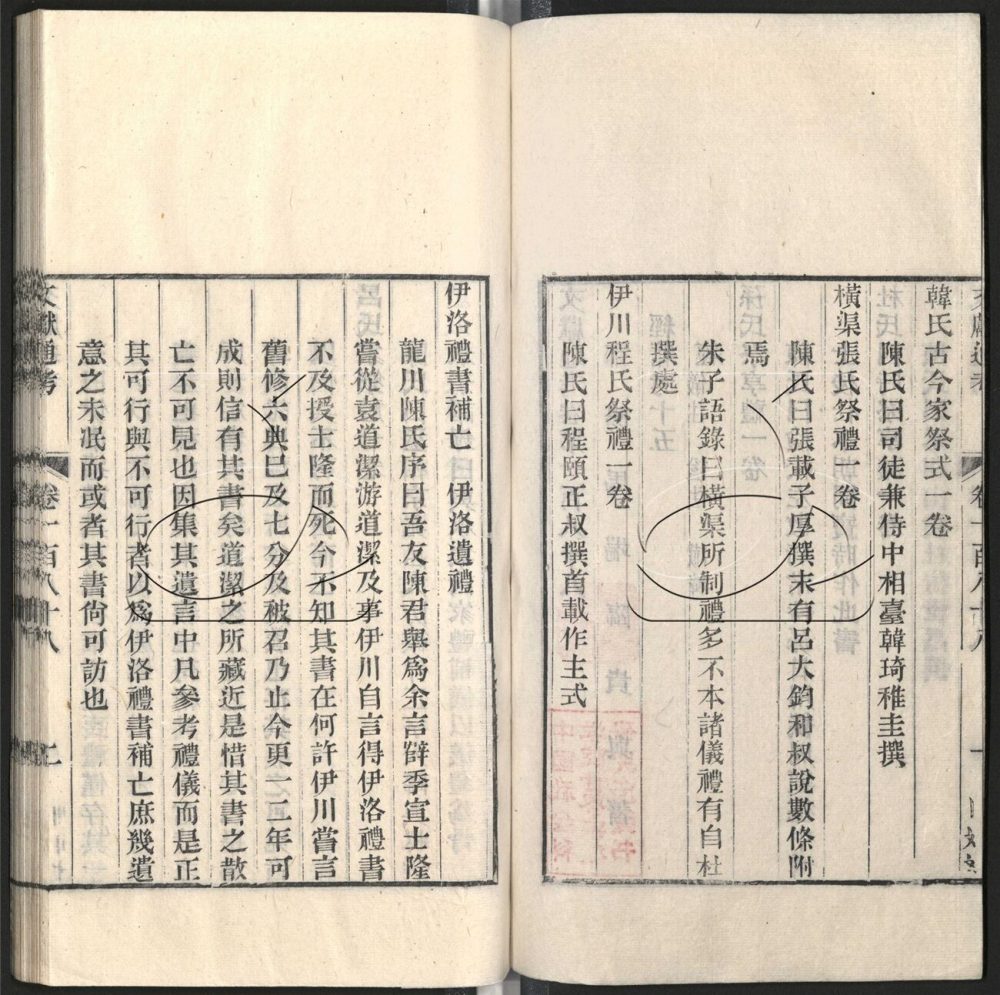 韓氏古今家祭式一卷
陳氏曰司徒兼侍中相臺韓琦稚圭撰
橫渠張氏祭禮一卷
陳氏曰張載子厚撰末有呂大鈞和叔說數條附
焉
朱子語錄曰橫渠所制禮多不本諸儀禮有自杜
撰處
伊川程氏祭禮一卷
陳氏曰程頤正叔撰首載作主式
伊洛禮書補亡 伊洛遺禮
龍川陳氏序曰吾友陳君舉爲余言薛季宣士隆
嘗從袁道潔游道潔及事伊川自言得伊洛禮書
不及授士隆而死今不知其書在何許伊川嘗言
舊修六典已及七分及被召乃止今更一二年可
成則信有其書矣道潔之所藏近是惜其書之散
亡不可見也因集其遺言中凡參考禮儀而是正
其可行與不可行者以爲伊洛禮書補亡庶幾遺
意之未泯而或者其書尙可訪也
文獻通考 卷一百八十八